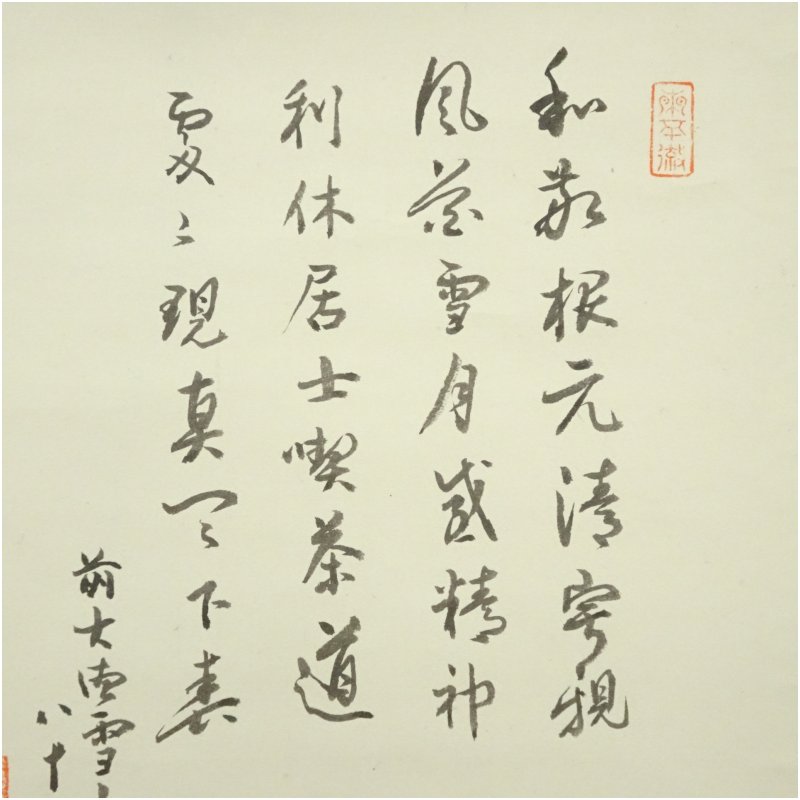 和敬根元清寂親
風花雪月感精神
利休居士喫茶道
處〻現真天下春
前大徳雪
八十